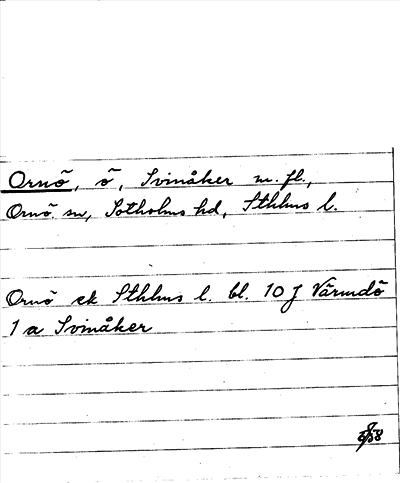 Ornö, ö, Svinåker m. fl.,
Ornö sn, Sotholms hd, Sthlms l.
Ornö ek Sthlms l. bl. 10 J Värmdö
1 a Svinåker